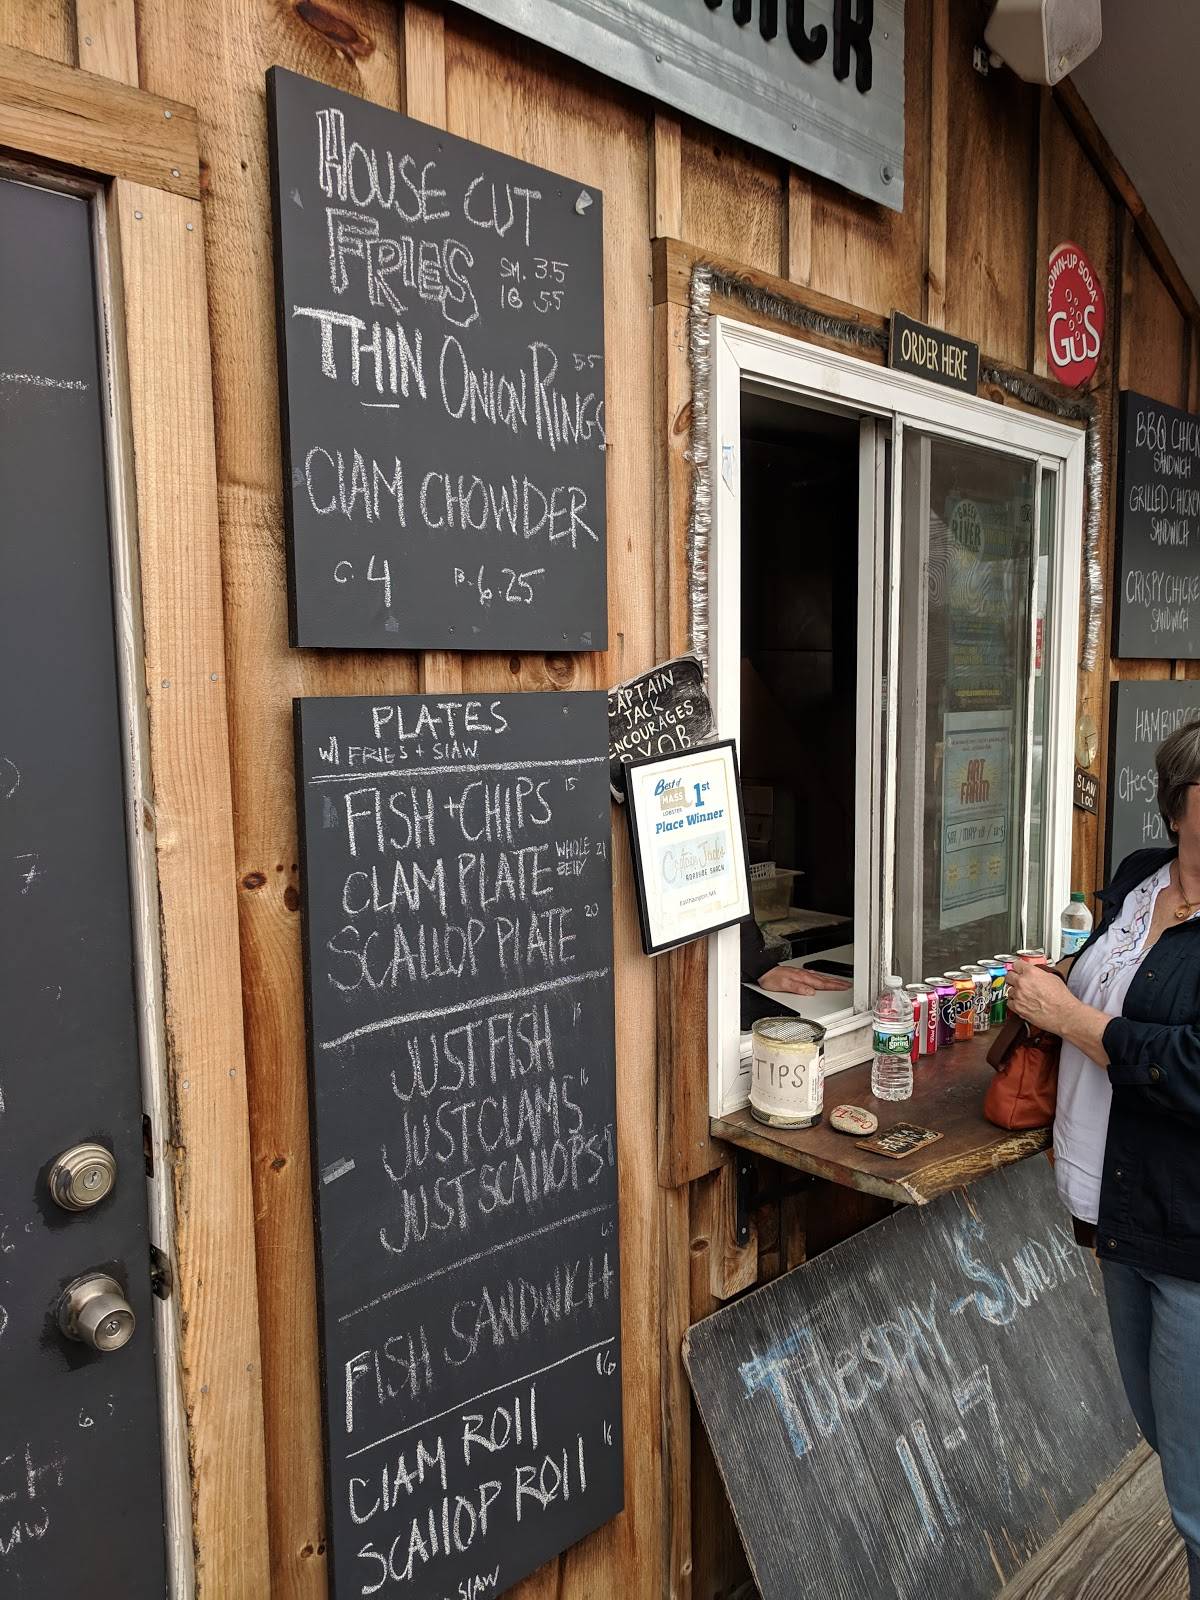 HOUSE CUT
FRIES SM. 3.5
lG 5.5
THIN ONION RINGS 5.5
ClAM CHOWDER
C. 4 B. 6.25
PLATES
W/ FRIES + SlAW
FISH + CHIPS 15
CLAM PLATE WHOLE BEllY 21
SCAllOP PLATE 20
JUST FISH
JUST CLAMS 16
JUST SCAllOPS
FISH SANDWICH 6.5
ClAM ROll 16
SCAllOP ROll 16
SlAW
CAPTAIN
JACK
ENCOURAGES
BYOB
Best of
MASS
LOBSTER
1st
Place Winner
Captain Jack's
ROADSIDE SHACK
Easthampton, MA
ORDER HERE
GROWN-UP SODA
GuS
ART
FARM
TIPS
Poland
Spring
Coke
BBQ CHICK
SANDWICH
GRILLED CHICK
SANDWICH
CRISPY CHICK
SANDWICH
HAMBU
CHEESE
HO
SLAW
1.00
TUESDAY - SUNDAY
11-7